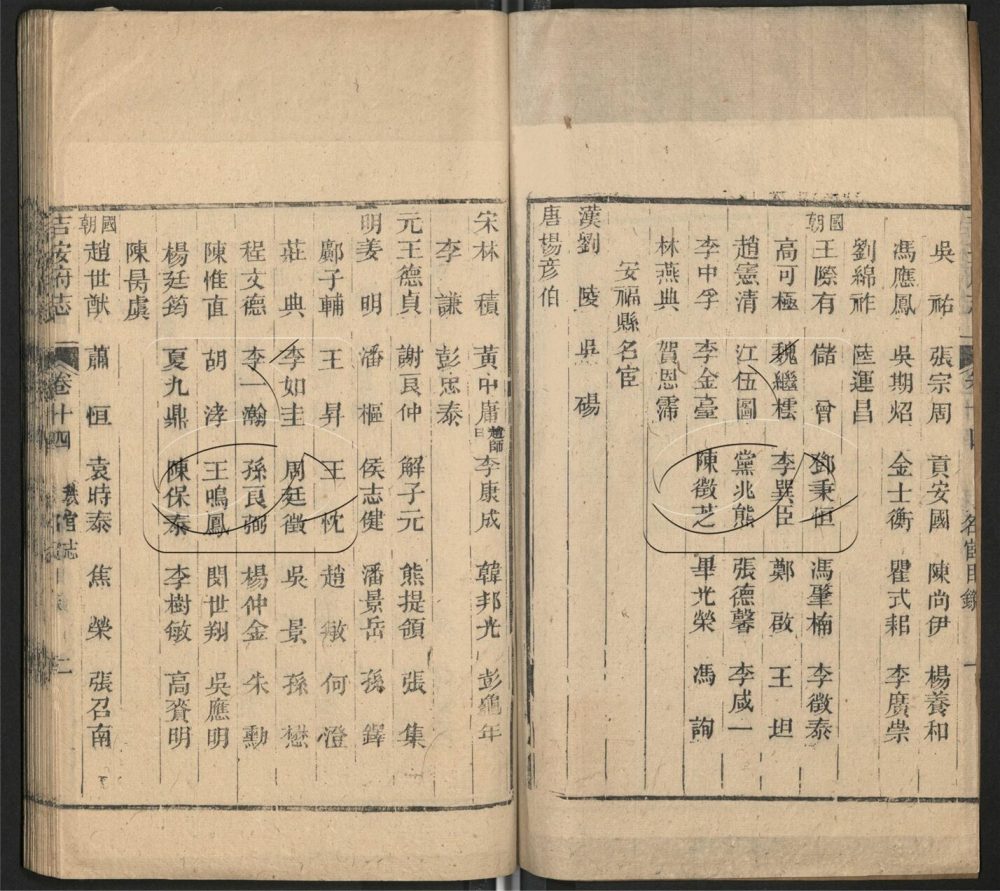 吳祐 張宗周 貢安國 陳尚伊 楊養和
馮應鳳 吳期炤 金士衡 瞿式耜 李廣崇
劉綿祚 陸運昌
國朝王際有 儲曾 鄧秉恒 馮肇楠 李徵泰
高可極 魏繼 李巽臣 鄭啟 王坦
趙憲清 江伍圖 黨兆熊 張德馨 李咸一
李中孚 李金臺 陳徵芝 畢光榮 馮詢
林燕典 賀恩霈
安福縣名宦
漢劉陵 吳碭
唐楊彥伯
名宦目錄 一
宋林積 黃中庸 趙師 李康成 韓邦光 彭龜年
李謙 彭忠泰
元王德貞 謝良仲 解子元 熊提領 張集
明姜明 潘樞 侯志健 潘景岳 孫鐸
鄺子輔 王昇 王忱 趙敏 何澄
莊典 李如圭 周廷徵 吳景 孫懋
程文德 李一瀚 孫良弼 楊仲金 朱勳
陳惟直 胡涍 王鳴鳳 閔世翔 吳應明
楊廷筠 夏九鼎 陳保泰 李樹敏 高賚明
陳昺虞
國朝趙世猷 蕭恒 袁時泰 焦榮 張召南
吉安府志 卷十四 官志 二